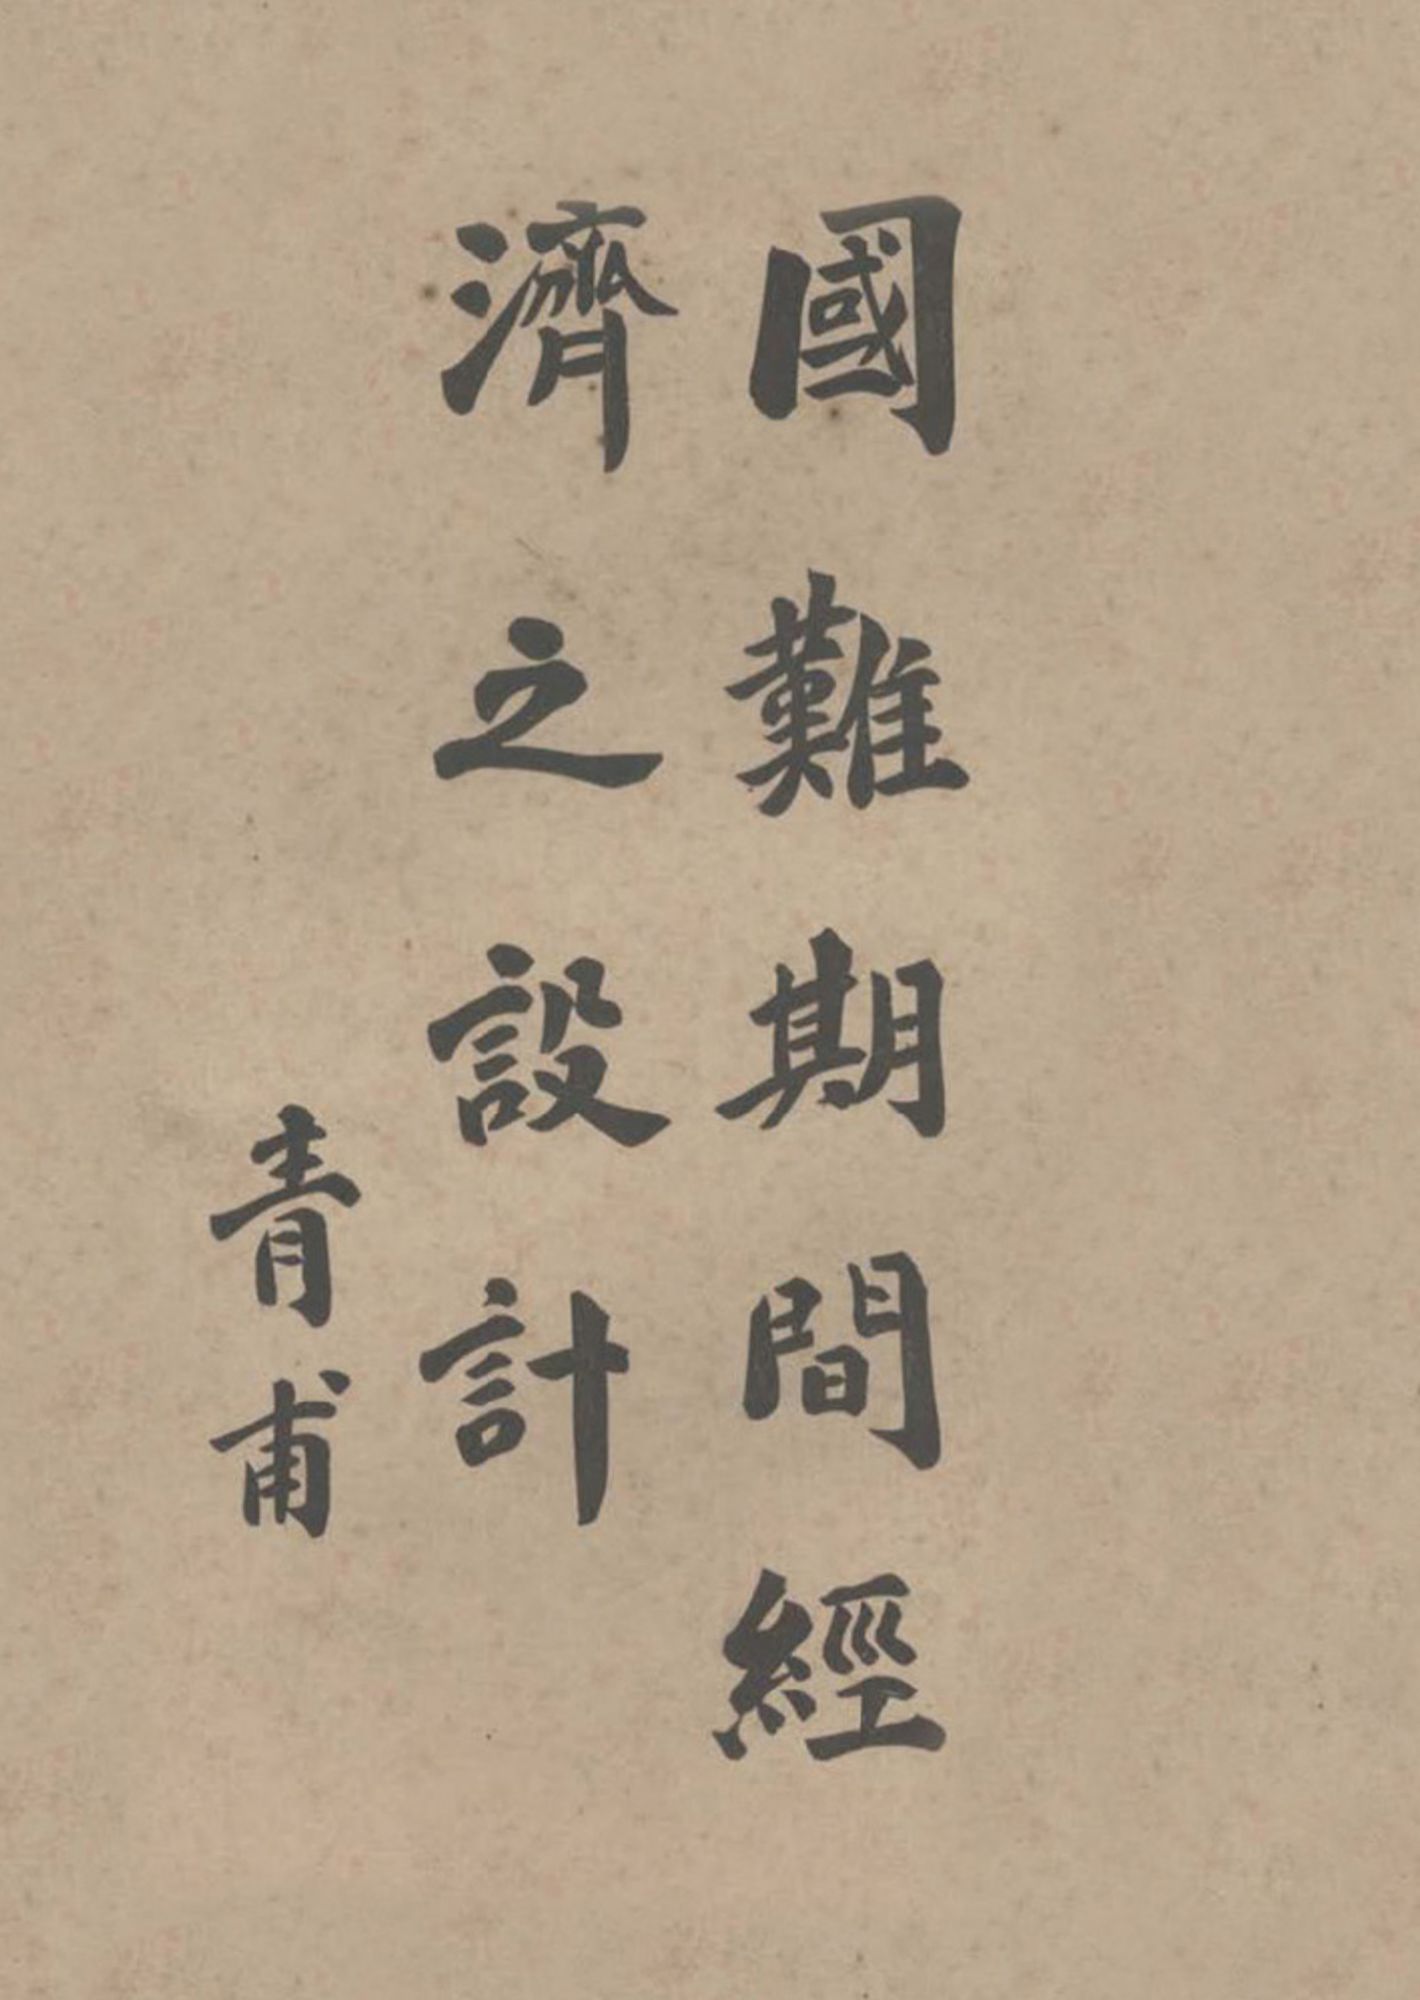 國難期間經
濟之設計
青甫